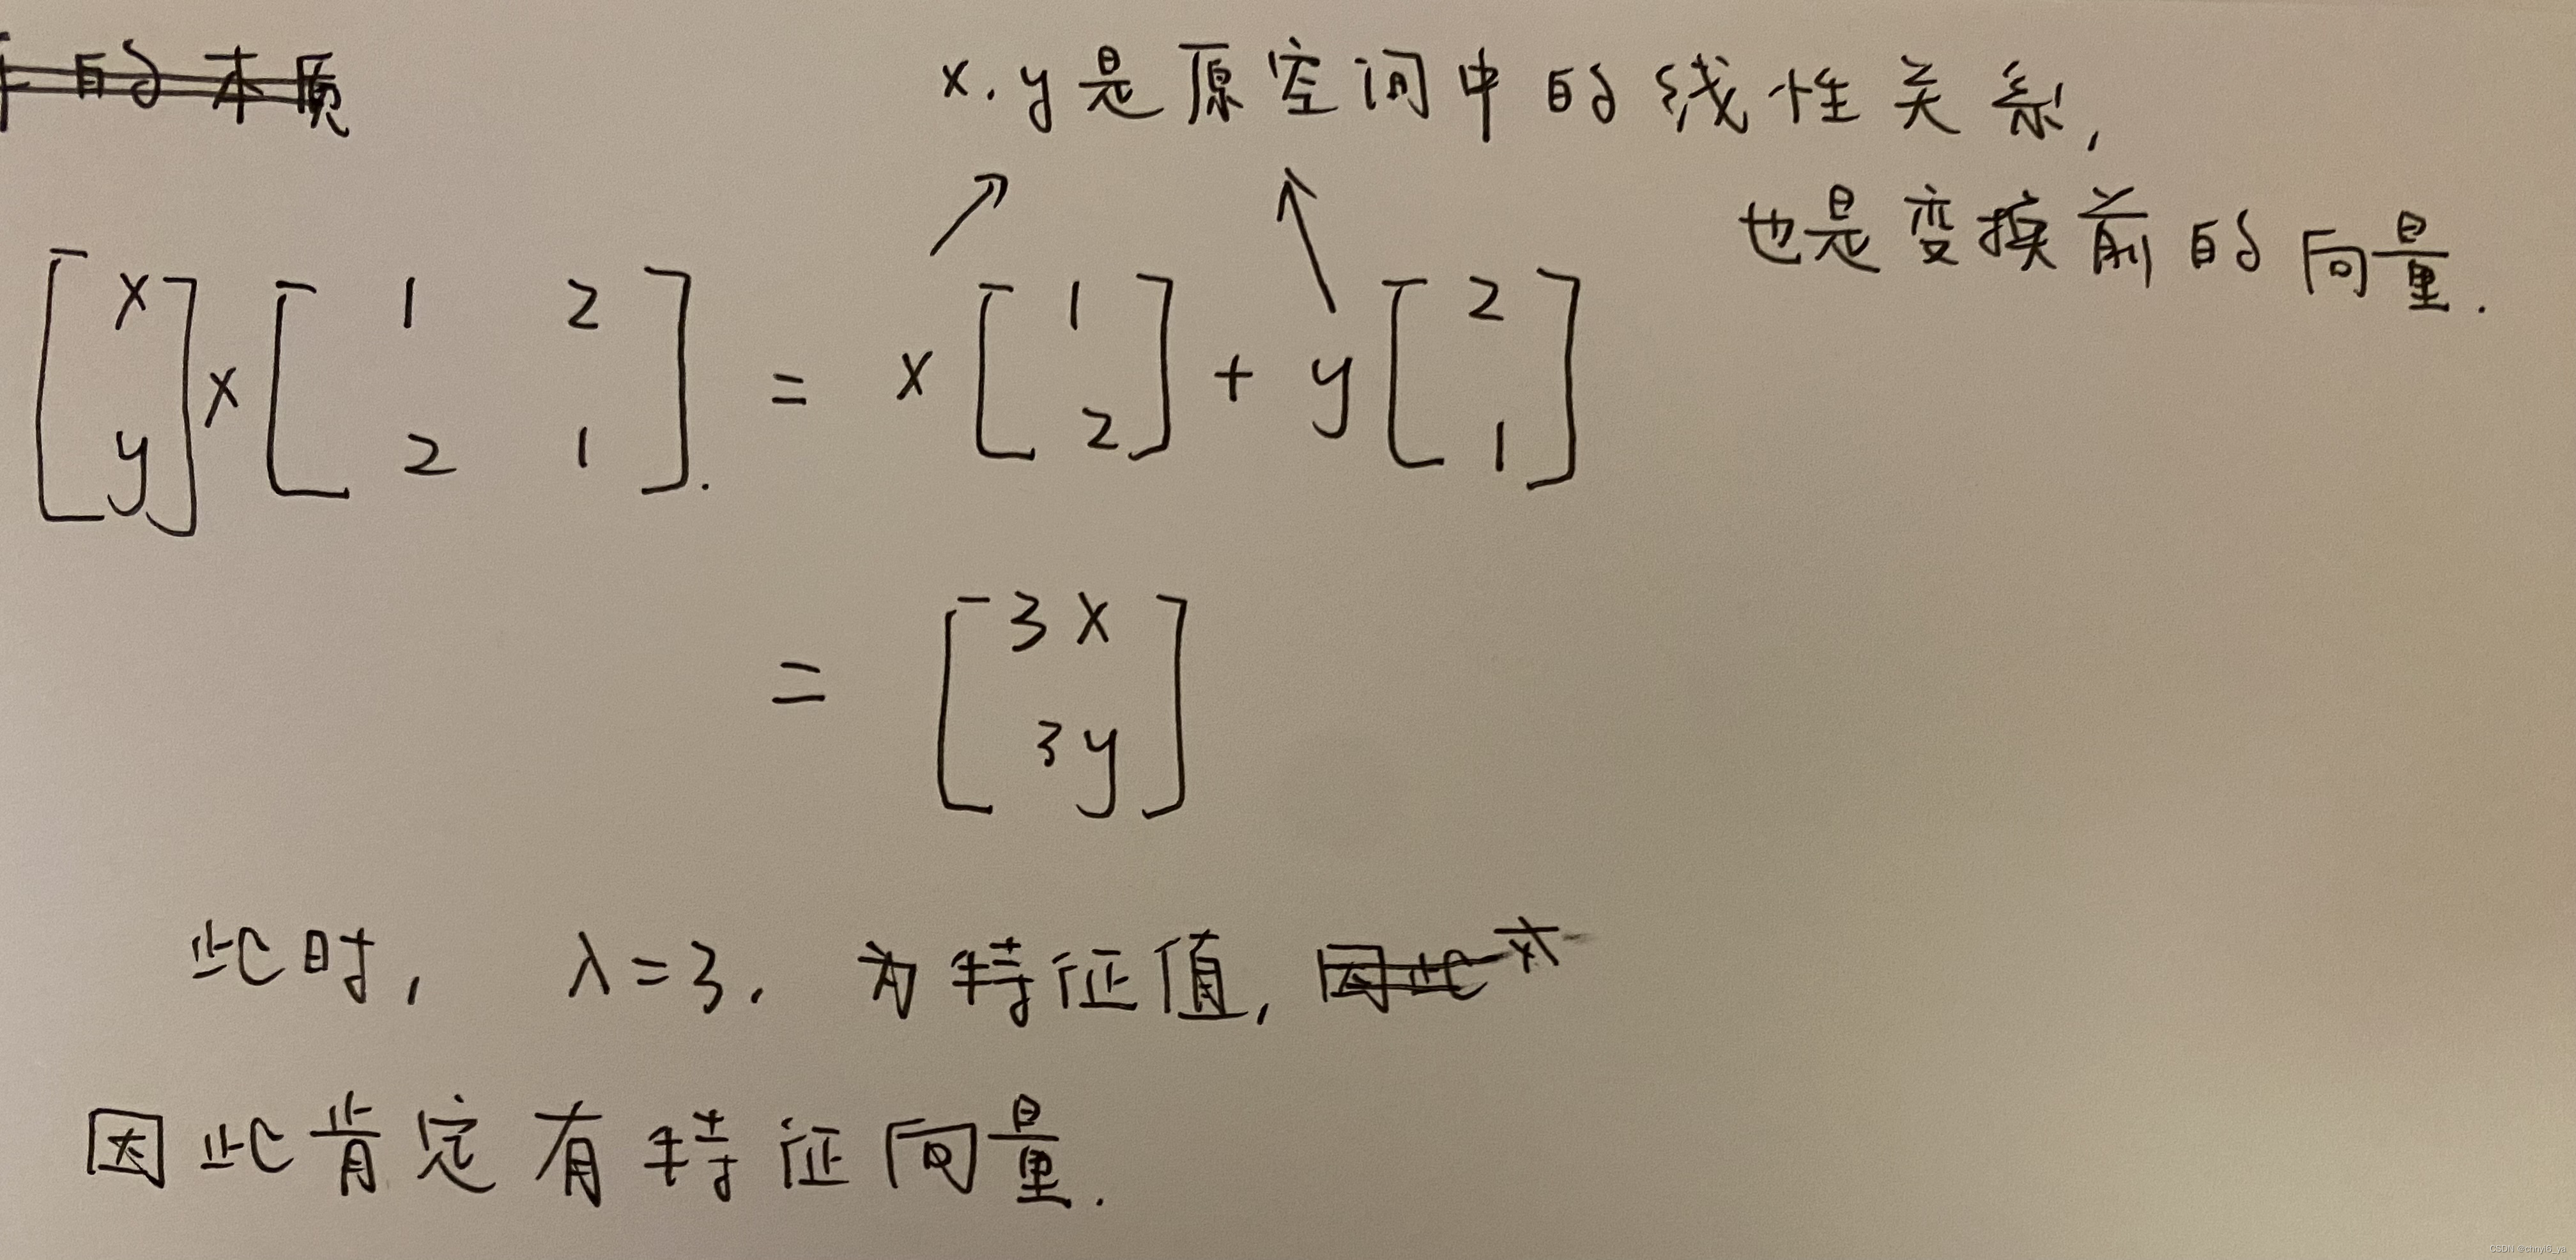 的本质
x.y是原空间中的线性关系,
也是变换前的向量.
[x y] × [1 2 2 1]. = x [1 2] + y [2 1]
= [3x 3y]
此时, λ=3. 为特征值, 因此对
因此肯定有特征向量.